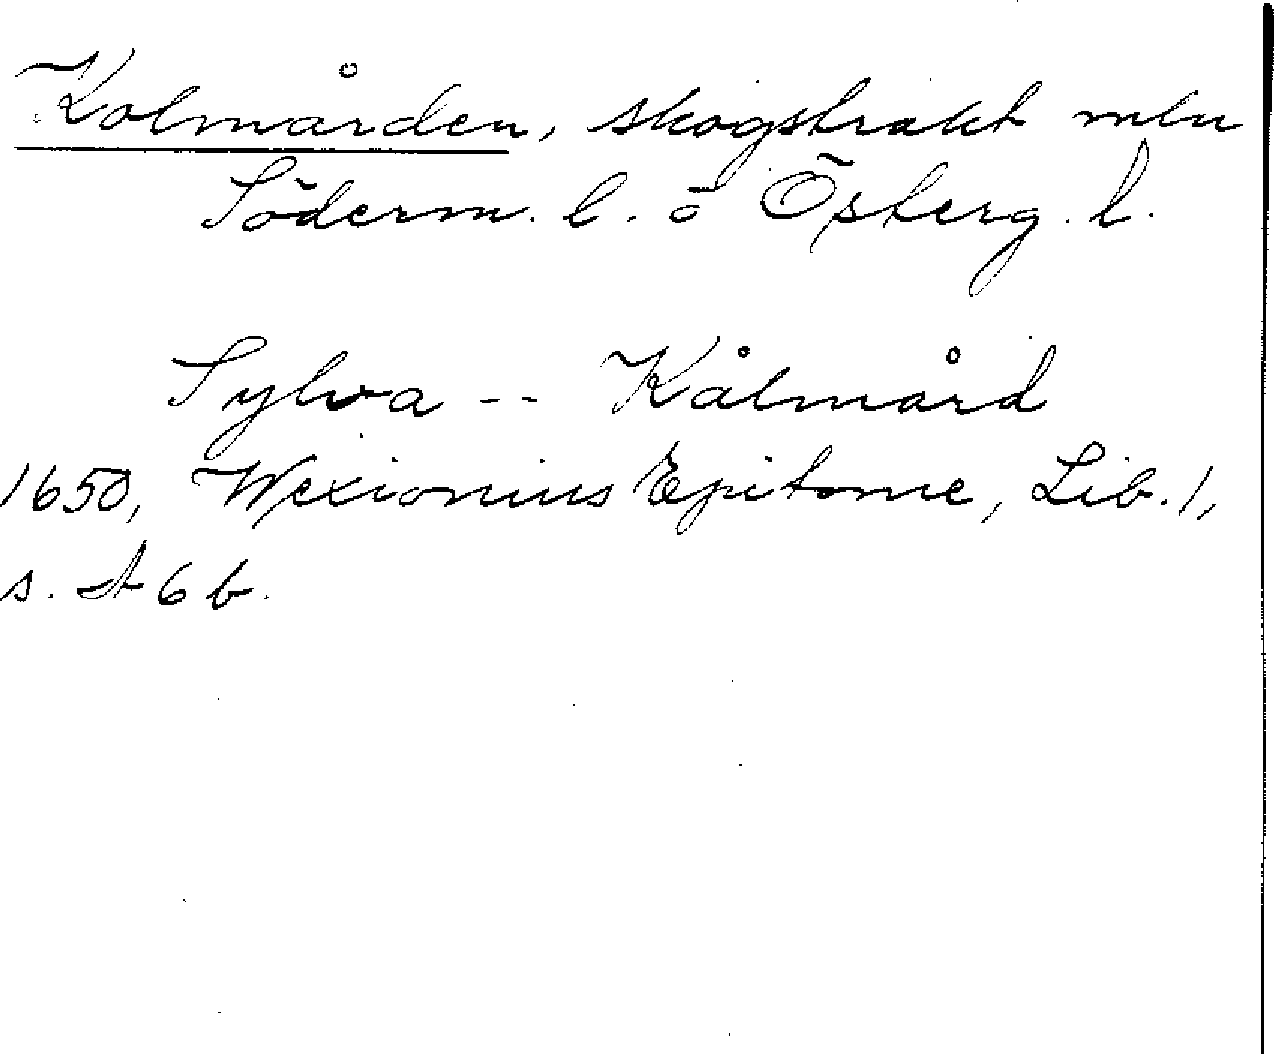 Kolmården, skogstrakt mln
Söderm. l. o Österg. l.
Sylva -- Kålmård
1650, Wexionius Epitome, Lib. 1,
s. A 6 b.